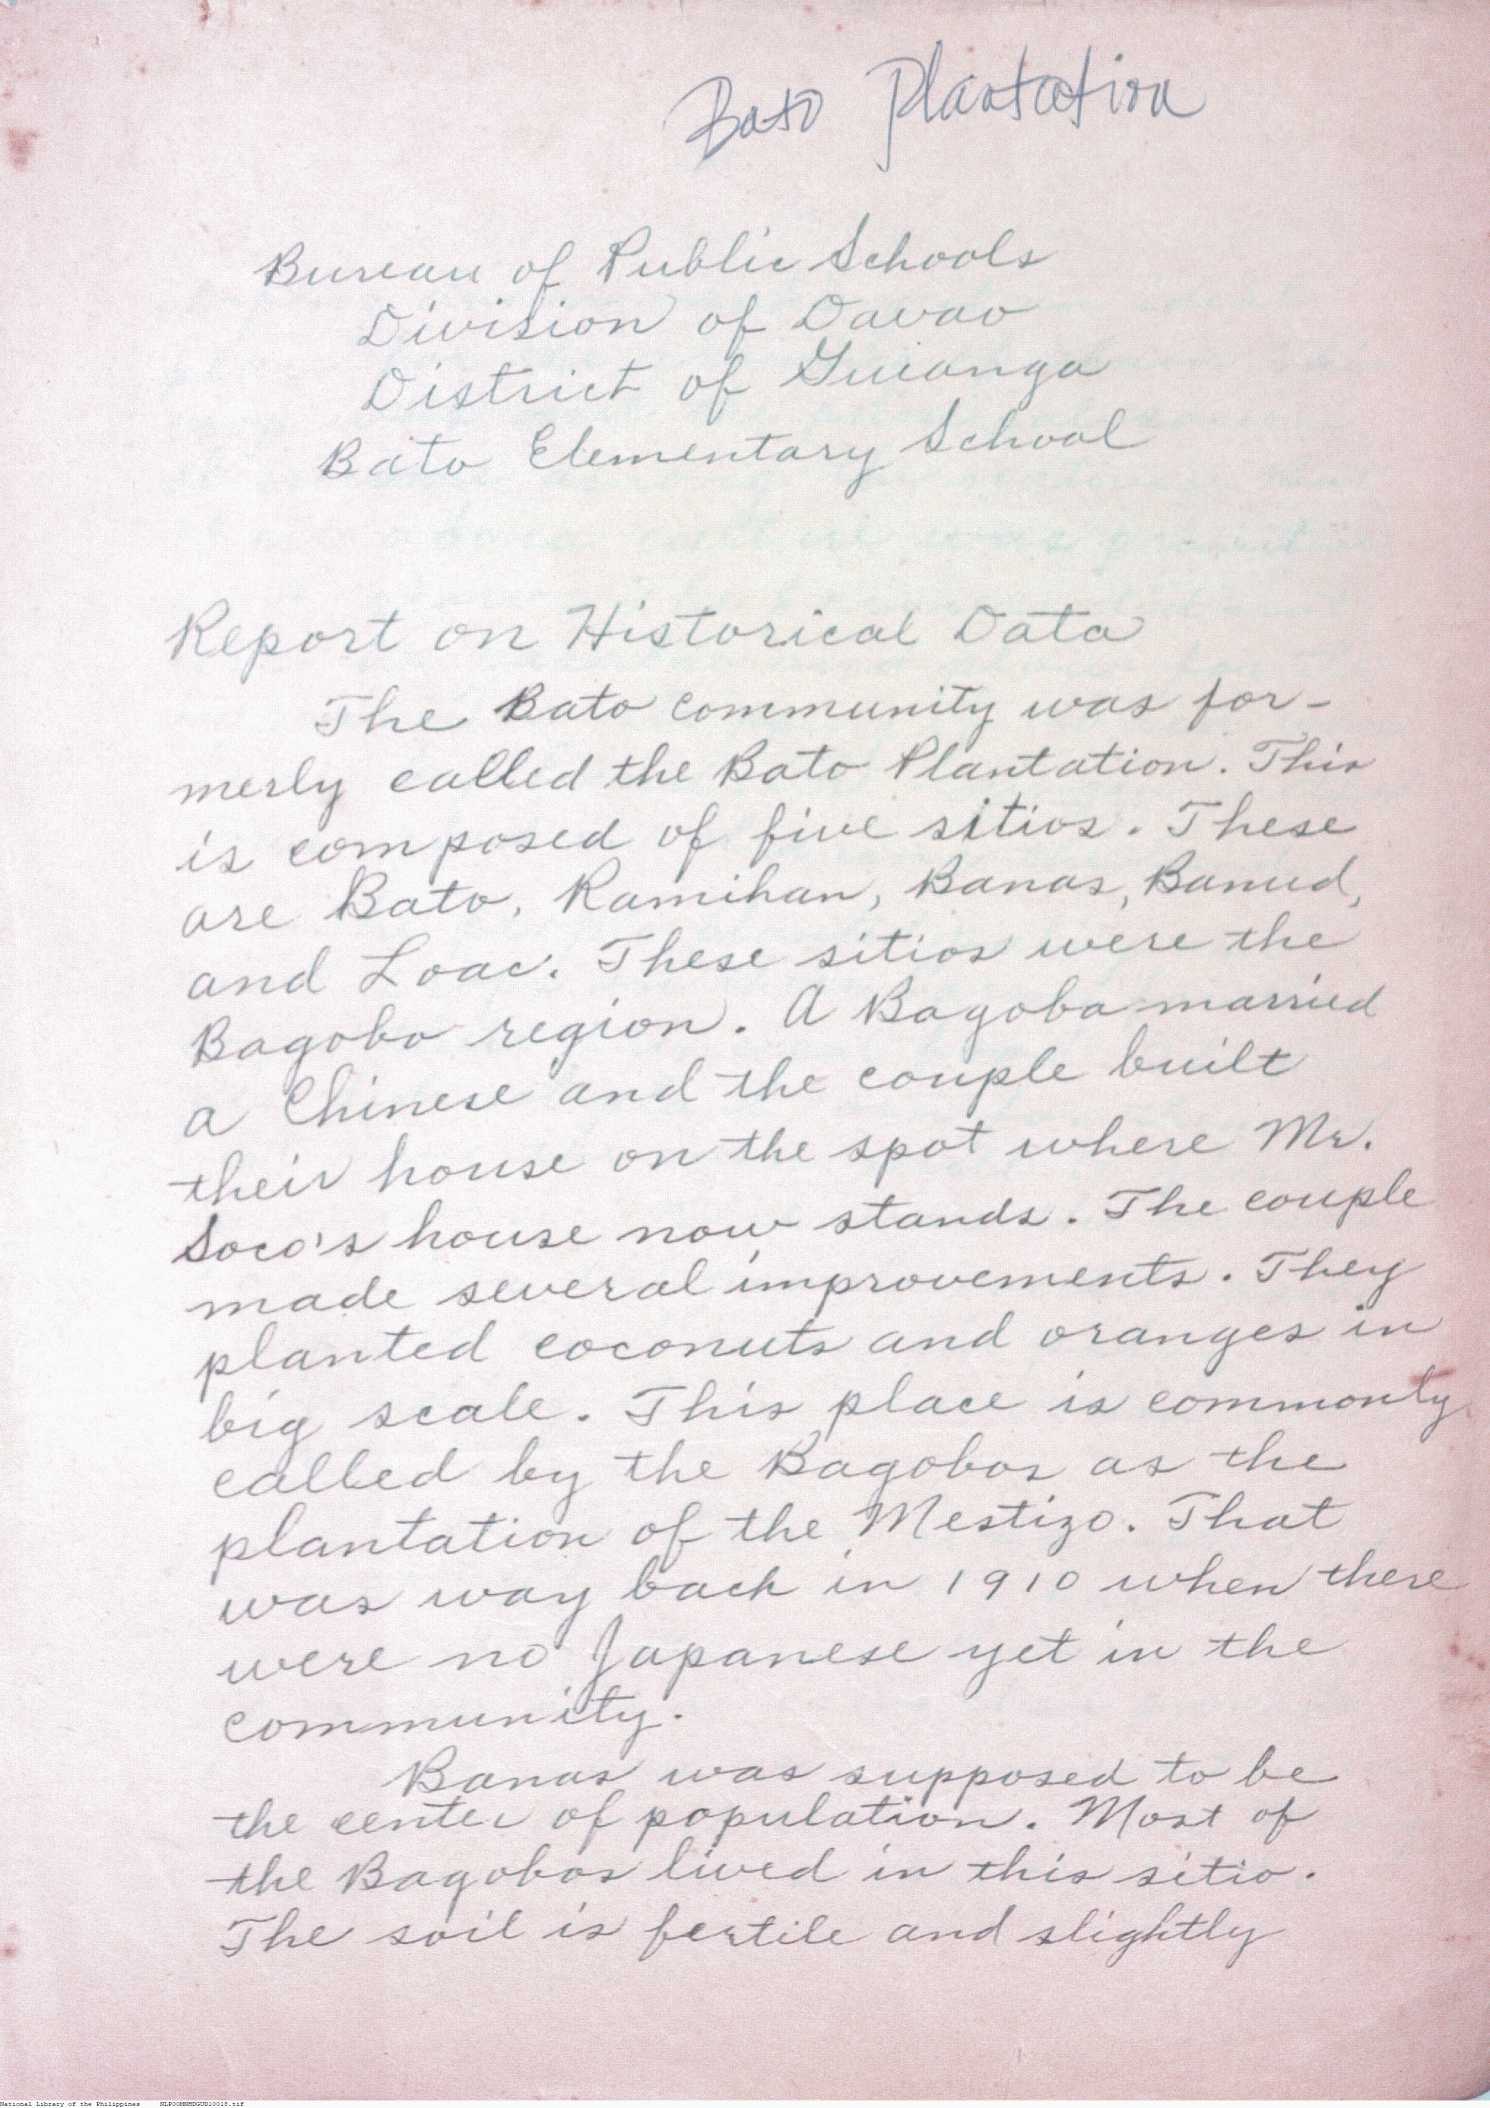 Bato Plantation
Bureau of Public Schools
Division of Davao
District of Guianga
Bato Elementary School
Report on Historical Data
The Bato community was for-
merly called the Bato Plantation. This
is composed of five sitios. These
are Bato, Ramihan, Banas, Banud,
and Loac. These sitios were the
Bagobo region. A Bagoba married
a Chinese and the couple built
their house on the spot where Mr.
Soco's house now stands. The couple
made several improvements. They
planted coconuts and oranges in
big scale. This place is commonly
called by the Bagobos as the
plantation of the Mestizo. That
was way back in 1910 when there
were no Japanese yet in the
community.
Banas was supposed to be
the center of population. Most of
the Bagobos lived in this sitio.
The soil is fertile and slightly
National Library of the Philippines